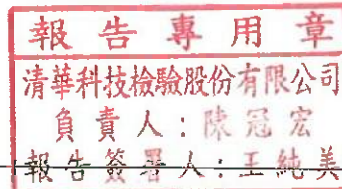 報告專用章
清華科技檢驗股份有限公司
負責人:陳冠宏
報告簽署人:王純美